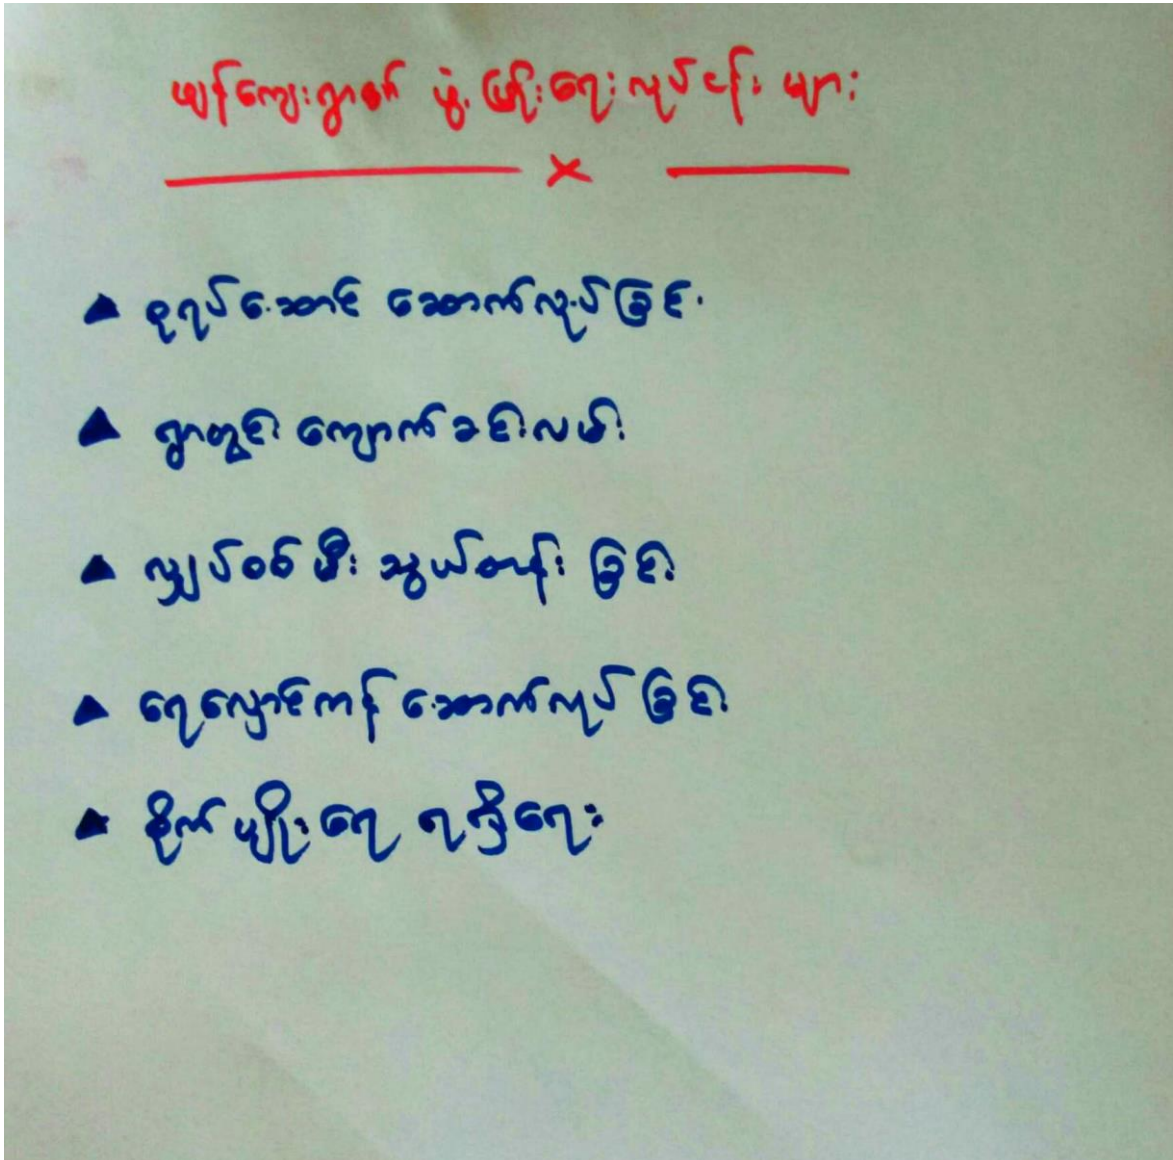 ကျေးရွာ ဖွံ့ဖြိုးရေးလုပ်ငန်းများ
စုရပ်ဆောင် ဆောက်လုပ်ခြင်း
ရွာတွင်း ကျောက်ခင်းလမ်း
လျှပ်စစ်မီး သွယ်တန်းခြင်း
ရေလှောင်ကန် ဆောက်လုပ်ခြင်း
စိုက်ပျိုးရေ ရရှိရေး